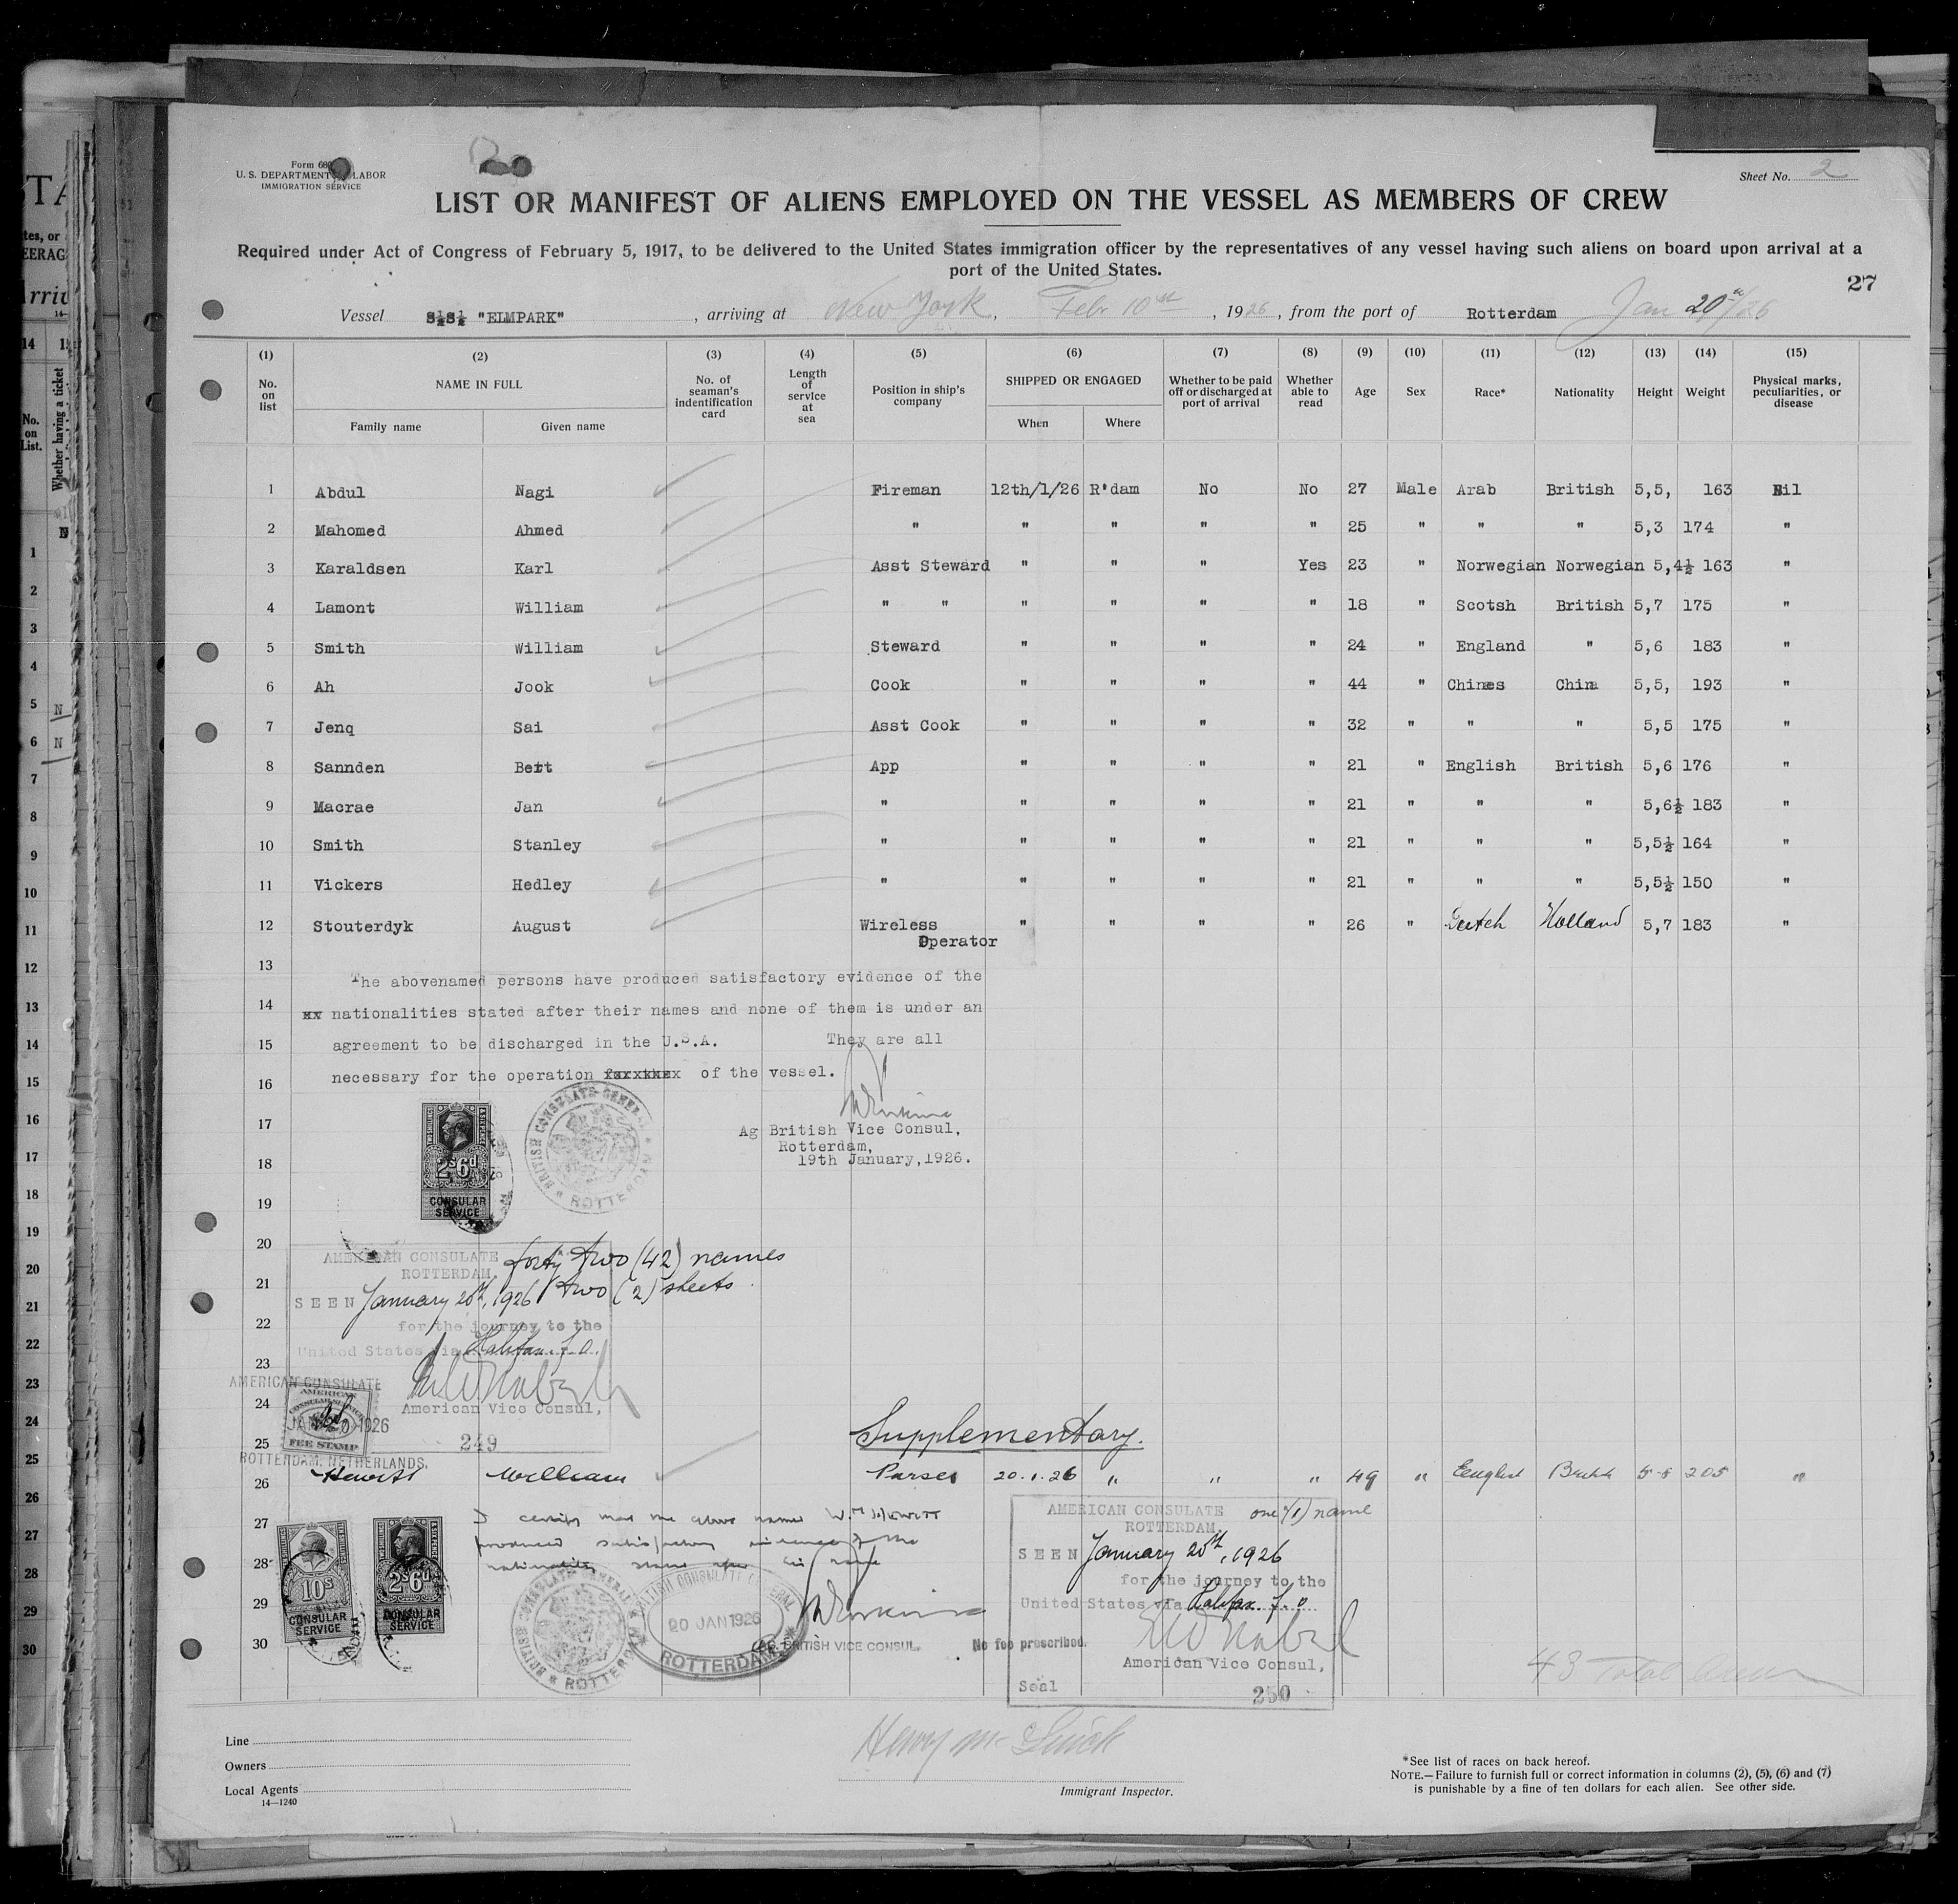 Form 68
U. S. DEPARTMENT LABOR
IMMIGRATION SERVICE
Sheet No. 2
LIST OR MANIFEST OF ALIENS EMPLOYED ON THE VESSEL AS MEMBERS OF CREW
Required under Act of Congress of February 5, 1917, to be delivered to the United States immigration officer by the representatives of any vessel having such aliens on board upon arrival at a
port of the United States.
27
Vessel S½S½ "ELMPARK" , arriving at New York, Febr 10th , 1926 , from the port of Rotterdam Jan 20th/26
(1) (2) (3) (4) (5) (6) (7) (8) (9) (10) (11) (12) (13) (14) (15)
No. on list NAME IN FULL No. of seaman's indentification card Length of service at sea Position in ship's company SHIPPED OR ENGAGED Whether to be paid off or discharged at port of arrival Whether able to read Age Sex Race* Nationality Height Weight Physical marks, peculiarities, or disease
Family name Given name When Where
1 Abdul Nagi Fireman 12th/1/26 R'dam No No 27 Male Arab British 5,5, 163 Nil
2 Mahomed Ahmed " " " " " 25 " " " 5,3 174 "
3 Karaldsen Karl Asst Steward " " " Yes 23 " Norwegian Norwegian 5,4½ 163 "
4 Lamont William " " " " " " 18 " Scotsh British 5,7 175 "
5 Smith William Steward " " " " 24 " England " 5,6 183 "
6 Ah Jook Cook " " " " 44 " Chines China 5,5, 193 "
7 Jenq Sai Asst Cook " " " " 32 " " " 5,5 175 "
8 Sannden Bert App " " " " 21 " English British 5,6 176 "
9 Macrae Jan " " " " " 21 " " " 5,6½ 183 "
10 Smith Stanley " " " " " 21 " " " 5,5½ 164 "
11 Vickers Hedley " " " " " 21 " " " 5,5½ 150 "
12 Stouterdyk August Wireless Operator " " " " 26 " Dutch Holland 5,7 183 "
13
The abovenamed persons have produced satisfactory evidence of the
14 xx nationalities stated after their names and none of them is under an
15 agreement to be discharged in the U.S.A. They are all
necessary for the operation of the vessel.
16
17 Ag British Vice Consul,
Rotterdam,
18 19th January, 1926.
BRITISH CONSULATE GENERAL * ROTTERDAM *
TWO SHILLINGS & SIXPENCE
2s6d
CONSULAR
SERVICE
19
20 AMERICAN CONSULATE forty two (42) names
ROTTERDAM,
21 SEEN January 20th, 1926 two (2) sheets
22 for the journey to the
United States via Halifax f.o.
23
AMERICAN CONSULATE
24 American Vice Consul,
AMERICAN
CONSULAR SERVICE
JAN 20 1926
FEE STAMP
25 249
Supplementary.
ROTTERDAM, NETHERLANDS,
26 Hewitt William Purser 20.1.26 " " " 49 " English British 5-8 205 "
27 I certify that the above named Wm Hewitt
produced satisfactory evidence of the
28 nationality stated after his name
29
30
10s
CONSULAR
SERVICE
2s6d
CONSULAR
SERVICE
BRITISH CONSULATE GENERAL * ROTTERDAM *
BRITISH CONSULATE GENERAL
20 JAN 1926
ROTTERDAM
AG. BRITISH VICE CONSUL.
AMERICAN CONSULATE one (1) name
ROTTERDAM,
SEEN January 20th, 1926
for the journey to the
United States via Halifax f.o
No fee prescribed.
American Vice Consul,
Seal 250
43 Total Crew
Line
Owners
Local Agents
14—1240
Immigrant Inspector.
*See list of races on back hereof.
NOTE.—Failure to furnish full or correct information in columns (2), (5), (6) and (7)
is punishable by a fine of ten dollars for each alien. See other side.